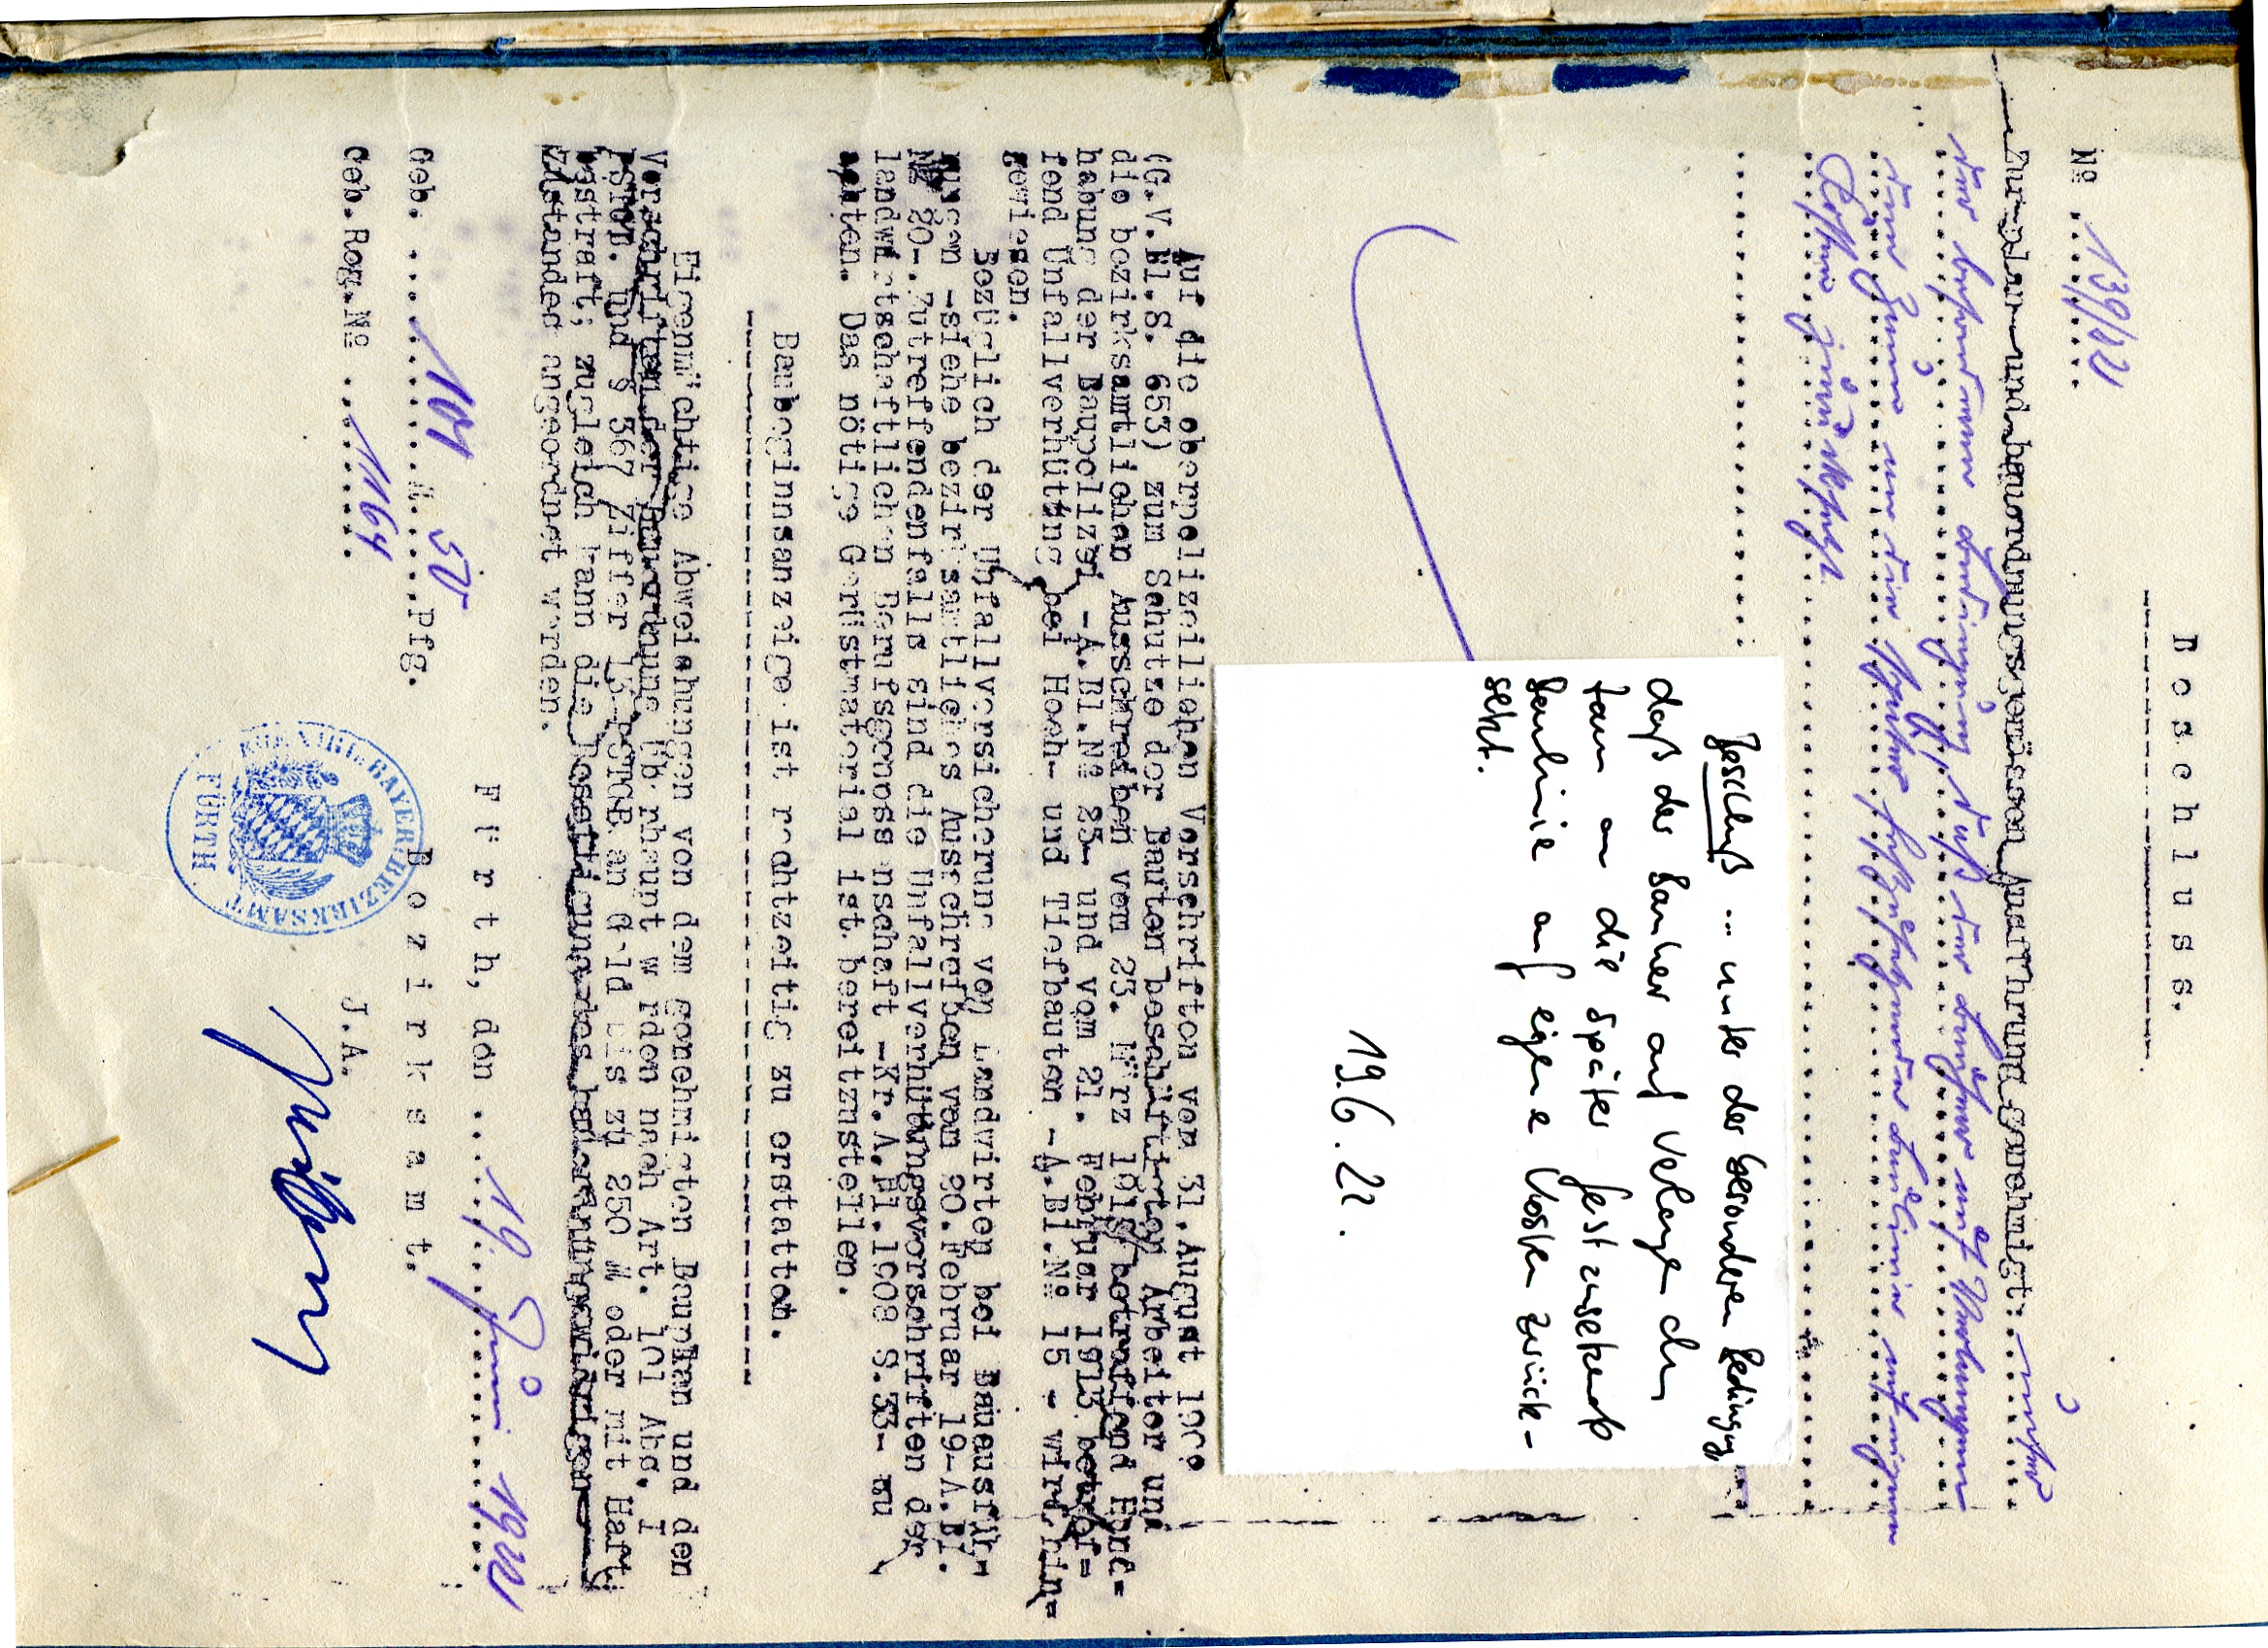 B e s c h l u s s.
№ 139/22
Zur plan- und bauordnungsgemässen Ausführung genehmigt: unter
der besonderen Bedingung, daß der Bauherr auf Verlangen
den Zaun an die später festzusetzende Baulinie auf eigene
Kosten zurücksetzt.
Beschluß ... unter der besonderen Bedingung,
daß der Bauherr auf Verlangen den
Zaun an die später festzusetzende
Baulinie auf eigene Kosten zurück-
setzt.
19.6.22.
Auf die oberpolizeilichen Vorschriften von 31. August 1909
(G.V.Bl.S. 653) zum Schutze der Bauten beschäftigten Arbeiter und
die bezirksamtlichen Ausschreiben vom 23. März betreffend Hand=
habung der Baupolizei -A.Bl.№ 25- und vom 21. Februar 1913 betref=
fend Unfallverhütung bei Hoch- und Tiefbauten -A.Bl.№ 15 - wird hin=
gewiesen.
Bezüglich der Unfallversicherung von Landwirten bei Bauausfüh-
rungen -siehe bezirksamtliches Ausschreiben vom 20.Februar 19-A.Bl.
№ 20-. Zutreffendenfalls sind die Unfallverhütungsvorschriften der
landwirtschaftlichen Berufsgenossenschaft -Kr.A.Bl.1908 S.33- zu
achten. Das nötige Gerüstmaterial ist bereitzustellen.
Baubeginnsanzeige ist rechtzeitig zu erstatten.
Eigenmächtige Abweichungen von dem genehmigten Bauplan und den
Vorschriften der Bauordnung überhaupt werden nach Art. 101 Abs. I
PStGB. und § 367 Ziffer 15 RStGB an Geld bis zu 250 M oder mit Haft
bestraft; zugleich kann die Beseitigung des bauordnungswidrigen
Zustandes angeordnet werden.
F ü r t h, den 19. Juni 1922
Geb. 104 M 50 Pfg.
B e z i r k s a m t.
Geb.Reg.№ 1164
J.A.
KÖNIGL. BAYER. BEZIRKSAMT
FÜRTH